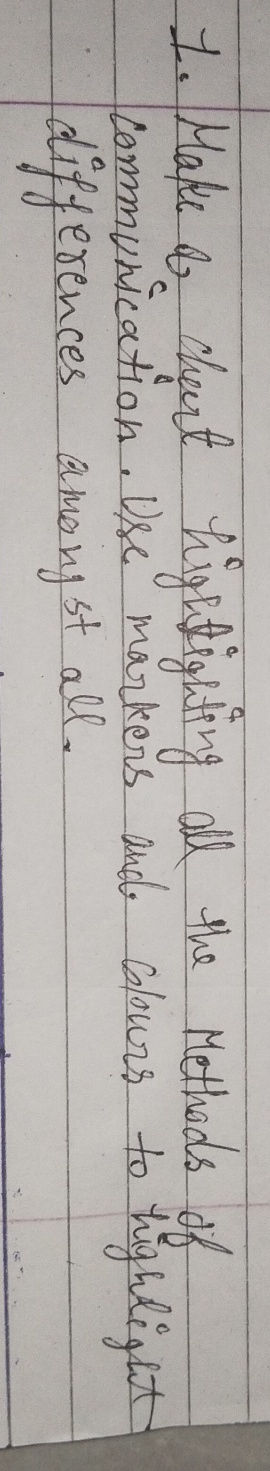 1. Make a chart highlighting all the Methods of
communication. Use markers and colours to highlight
differences amongst all.